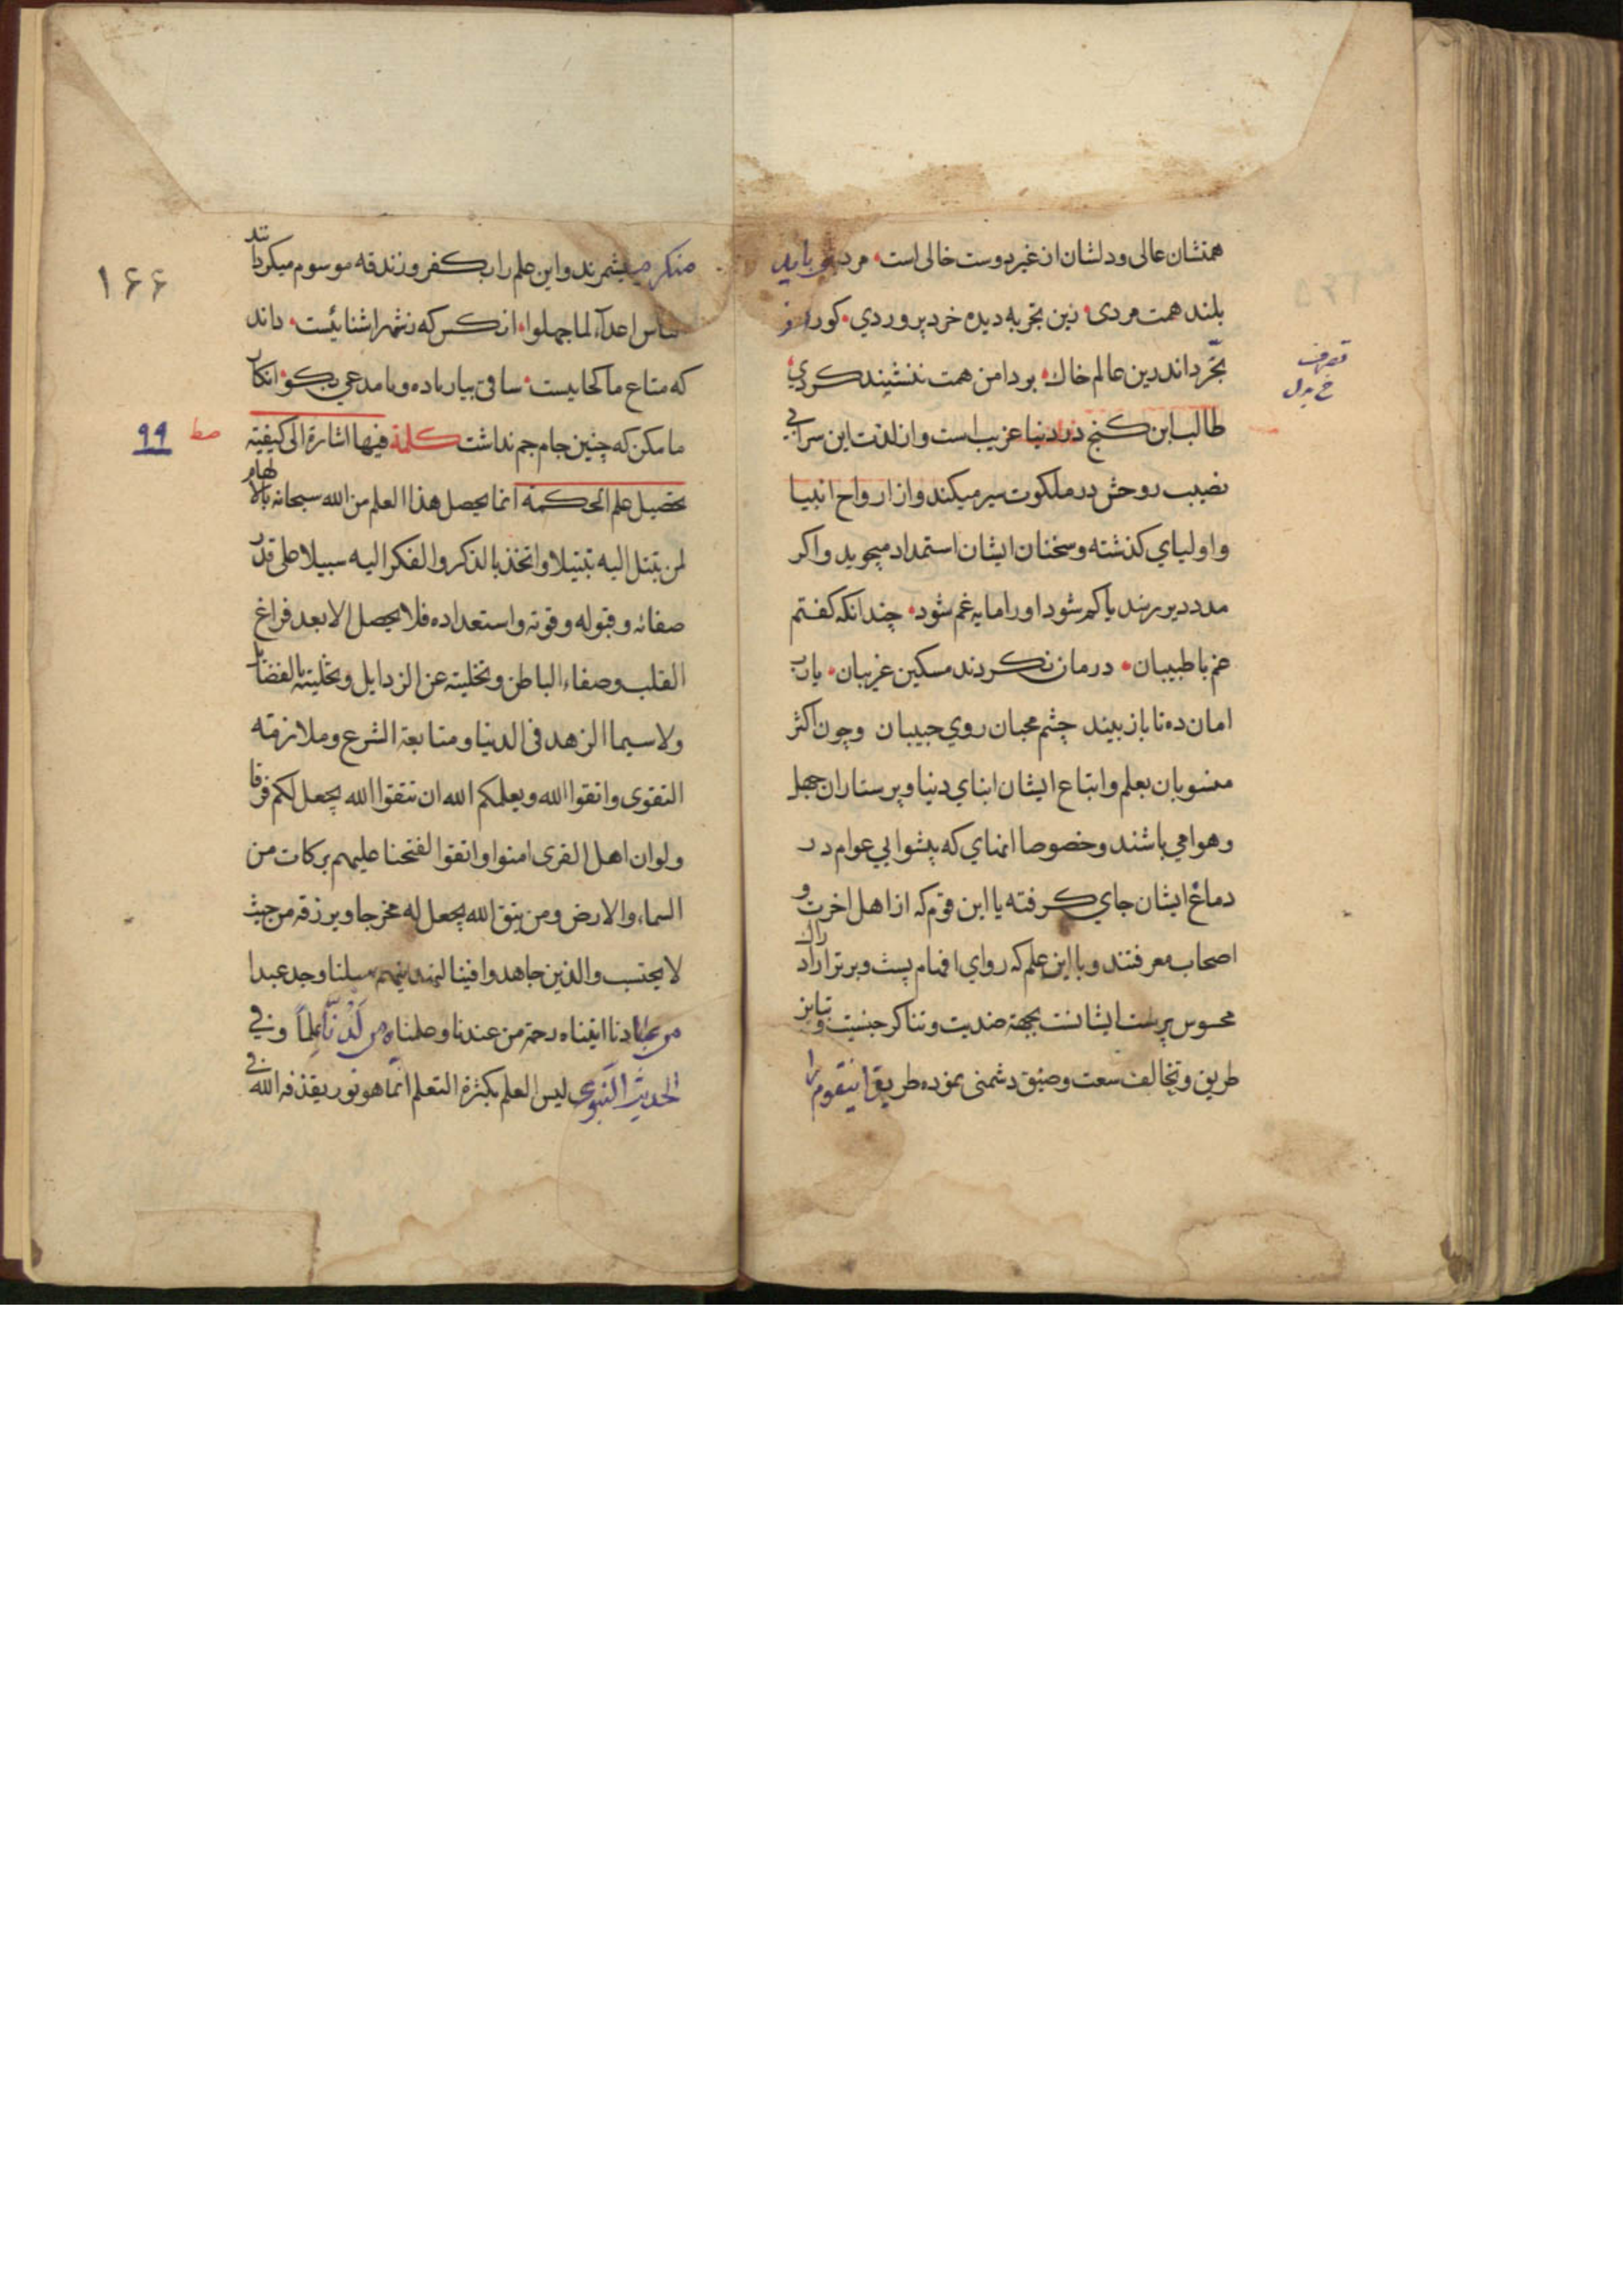 همتشان عالی ودلشان از غیر دوست خالی است مردی باید
بلند همت مردی زین تجربه دیده خرد پروردی کورا ز
تجرد اندرین عالم خاک بر دامن همت ننشیند کردی
تصرف
خ بدل
طالب این کنج در دنیا غریب است واز لذت این سرا بی
نصیب روحش در ملکوت سیر میکند واز ارواح انبیا
واولیای کذشته وسخنان ایشان استمداد میجوید واکر
مدد دیر رسد یا کم شود اورا مایه غم شود چندانکه کفتم
غم با طبیبان درمان نکردند مسکین غریبان یارب
امان ده تا باز بیند چشم محبان روی حبیبان وچون اکثر
منسوبان بعلم واتباع ایشان ابنای دنیا وپرستاران جهل
وهوا می باشند وخصوصا انهای که پیشوایی عوام در
دماغ ایشان جای کرفته با این قوم که از اهل اخرت و
اصحاب معرفتند وبا این علم که روای افهام پست وبرتر از ادراک
محسوس پرست ایشانست بجهة ضدیت وتناکر جنسیت وتباین
طریق وتخالف سعت وضیق دشمنی نموده طریق اینقوم را
۱۶۶
منکر میشمرند واین علم را بکفر وزندقه موسوم میکردانند
الناس اعدآء لما جهلوا انکس که ز شهر اشنائیست داند
که متاع ما کجاییست ساقی بیار باده وبا مدعی بکو انکار
۹۹
ما مکن که چنین جام جم نداشت کلمة فیها اشارة الی کیفیة
تحصیل علم الحکمة انما یحصل هذا العلم من الله سبحانه بالالهام
لمن تبتل الیه تبتیلا واتخذ بالذکر والفکر الیه سبیلا علی قدر
صفائه وقبوله وقوته واستعداده فلا یحصل الا بعد فراغ
القلب وصفاء الباطن وتخلیته عن الرذایل وتحلیته بالفضایل
ولا سیما الزهد فی الدنیا ومتابعة الشرع وملازمة
التقوی واتقوا الله ویعلمکم الله ان تتقوا الله یجعل لکم فرقانا
ولو ان اهل القری امنوا واتقوا لفتحنا علیهم برکات من
السماء والارض ومن یتق الله یجعل له مخرجا ویرزقه من حیث
لا یحتسب والذین جاهدوا فینا لنهدینهم سبلنا وجد عبدا
من عبادنا اتیناه رحمة من عندنا وعلمناه من لَدُنّا عِلماً وفی
الحدیث النبوی لیس العلم بکثرة التعلم انما هو نور یقذفه الله فی